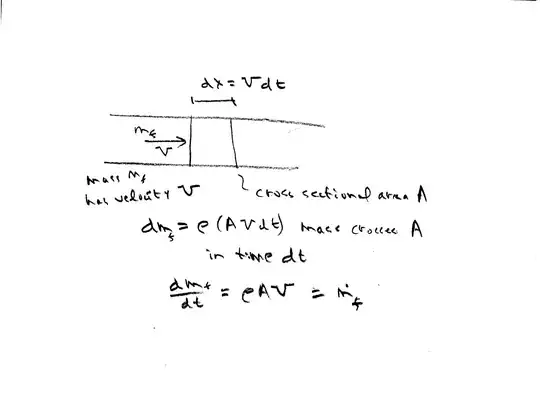 dx = v dt
m_f
v
mass m_f
has velocity v
cross sectional area A
dm_f = ρ (A v dt) mass crosses A
in time dt
dm_f/dt = ρAv = ṁ_f